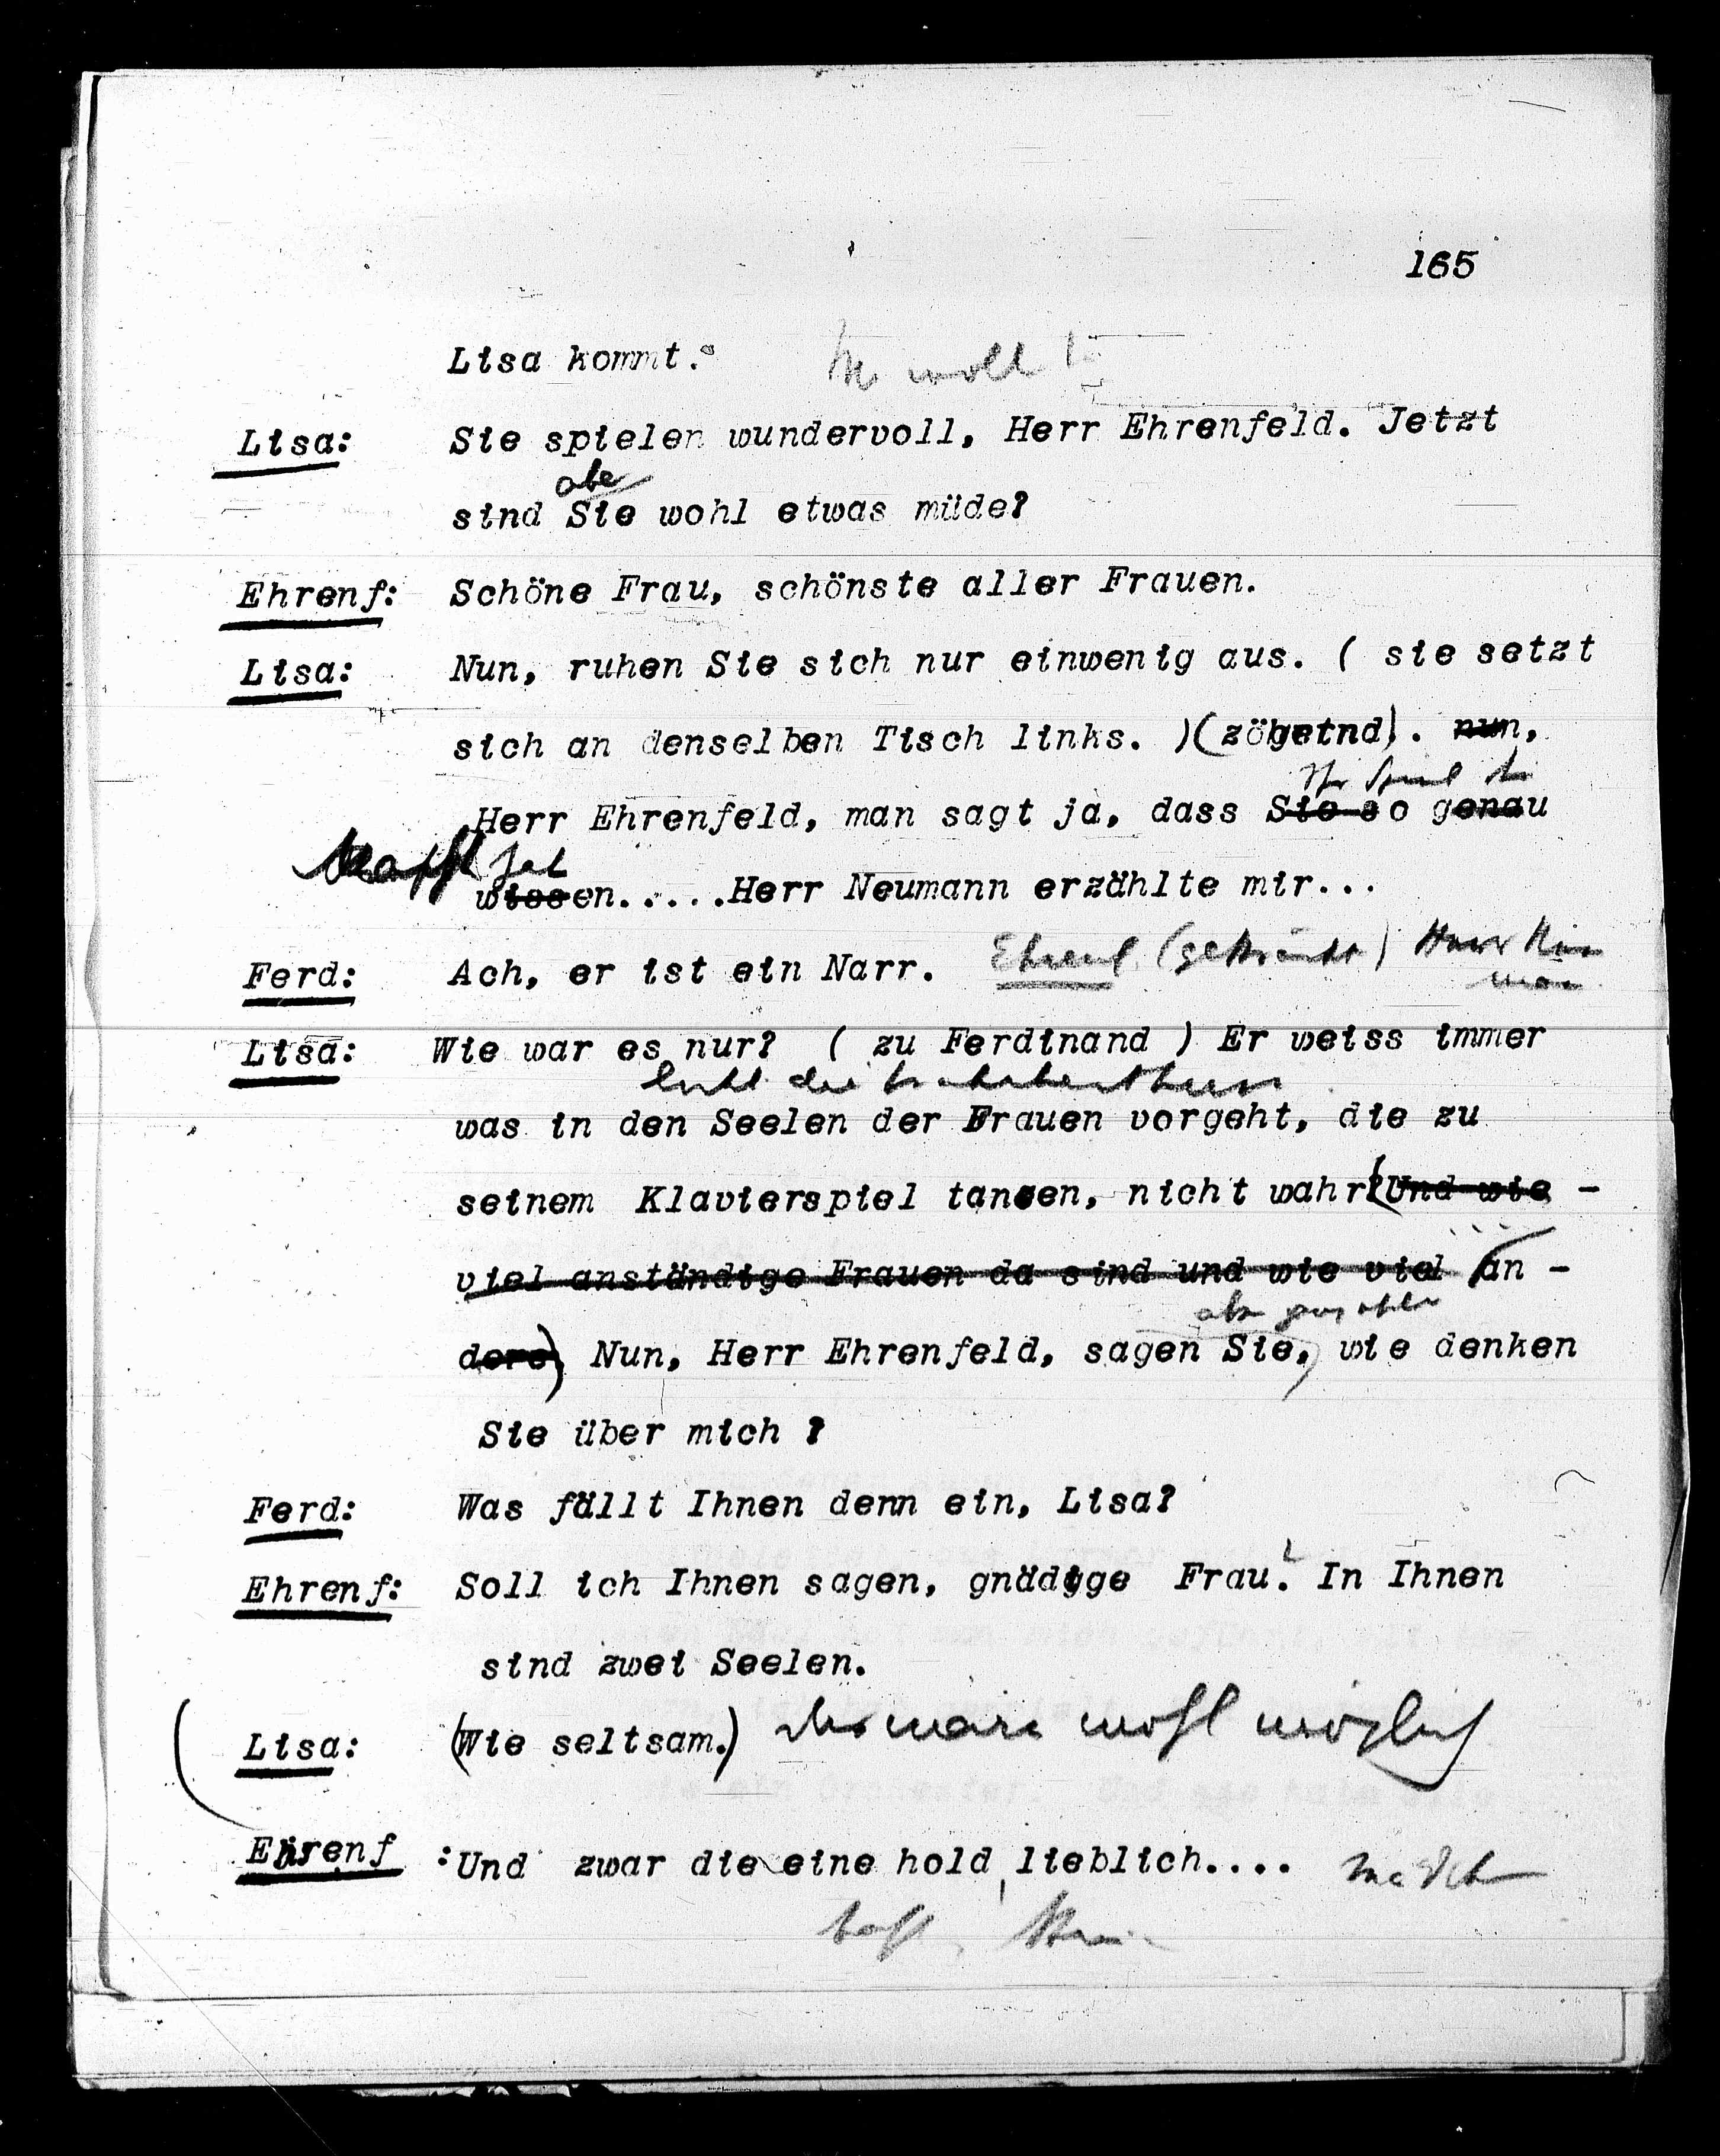 165
Lisa kommt.
Lisa: Sie spielen wundervoll, Herr Ehrenfeld. Jetzt
aber
sind Sie wohl etwas müde?
Ehrenf: Schöne Frau, schönste aller Frauen.
Lisa: Nun, ruhen Sie sich nur einwenig aus. ( sie setzt
sich an denselben Tisch links. )(zögernd). nun,
Herr Ehrenfeld, man sagt ja, dass Sie so genau
wissen.....Herr Neumann erzählte mir...
Ferd: Ach, er ist ein Narr. Ehrenf. (gekränkt) Herr
Lisa: Wie war es nur? ( zu Ferdinand ) Er weiss immer
was in den Seelen der Frauen vorgeht, die zu
seinem Klavierspiel tanzen, nicht wahr? (Und wie -
viel anständige Frauen da sind und wie viel an -
dere) Nun, Herr Ehrenfeld, sagen Sie, wie denken
Sie über mich ?
Ferd: Was fällt Ihnen denn ein, Lisa?
Ehrenf: Soll ich Ihnen sagen, gnädige Frau? In Ihnen
sind zwei Seelen.
Lisa: (Wie seltsam.) Das wäre wohl möglich
Ehrenf :Und zwar die eine hold, lieblich....